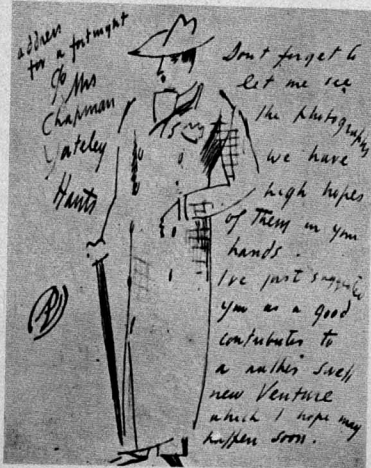 address
for a fortnight
c/o Mrs
Chapman
Yateley
Hants
Don't forget to
let me see
the photographs
we have
high hopes
of them in your
hands.
I've just suggested
you as a good
contributor to
a rather swell
new Venture
which I hope may
happen soon.